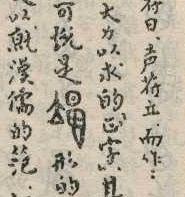 符日、声符丑、而作：
大力以求的正字、且
可说是 形的
以 漢儒的范、